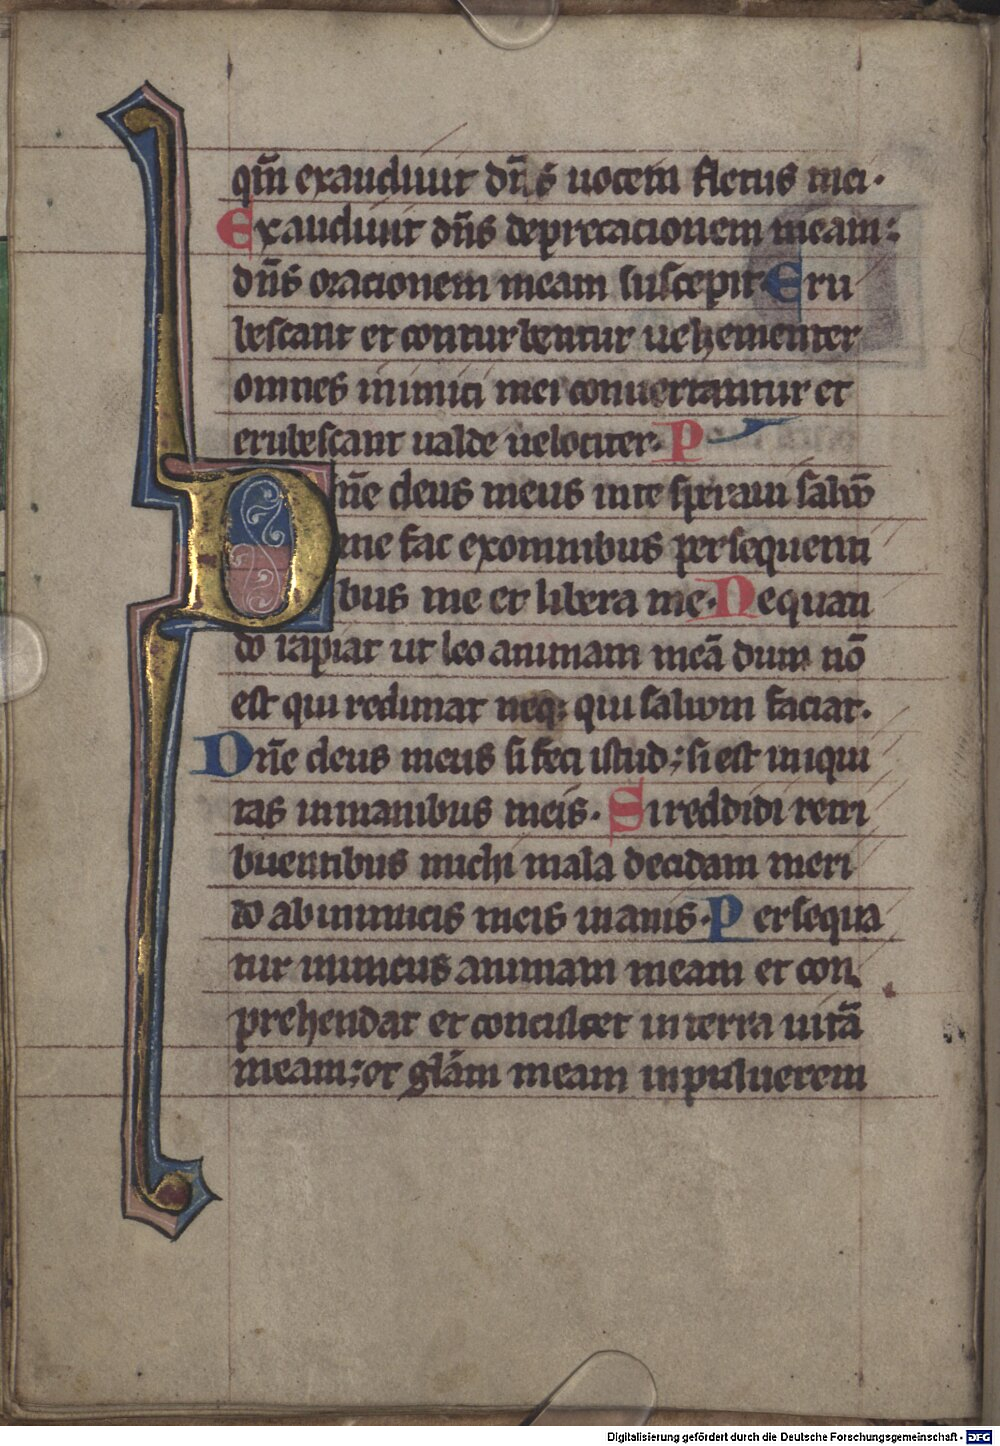 qm̄ exaudiuit dn̄s uocem fletus mei.
Exaudiuit dn̄s deprecacionem meam:
dn̄s oracionem meam suscepit Eru
bescant et conturbentur uehementer
omnes inimici mei conuertantur et
erubescant ualde uelociter. P
Dn̄e deus meus in te speraui saluū
me fac ex omnibus persequenti
bus me et libera me. Ne quan
do rapiat ut leo animam meā dum nō
est qui redimat neq; qui saluum faciat.
Dn̄e deus meus si feci istud; si est iniqui
tas in manibus meis. Si reddidi retri
buentibus michi mala decidam meri
to ab inimicis meis inanis. Persequa
tur inimicus animam meam et con
prehendat et conculcet in terra uitā
meam; et glām meam in puluerem
Digitalisierung gefördert durch die Deutsche Forschungsgemeinschaft - DFG